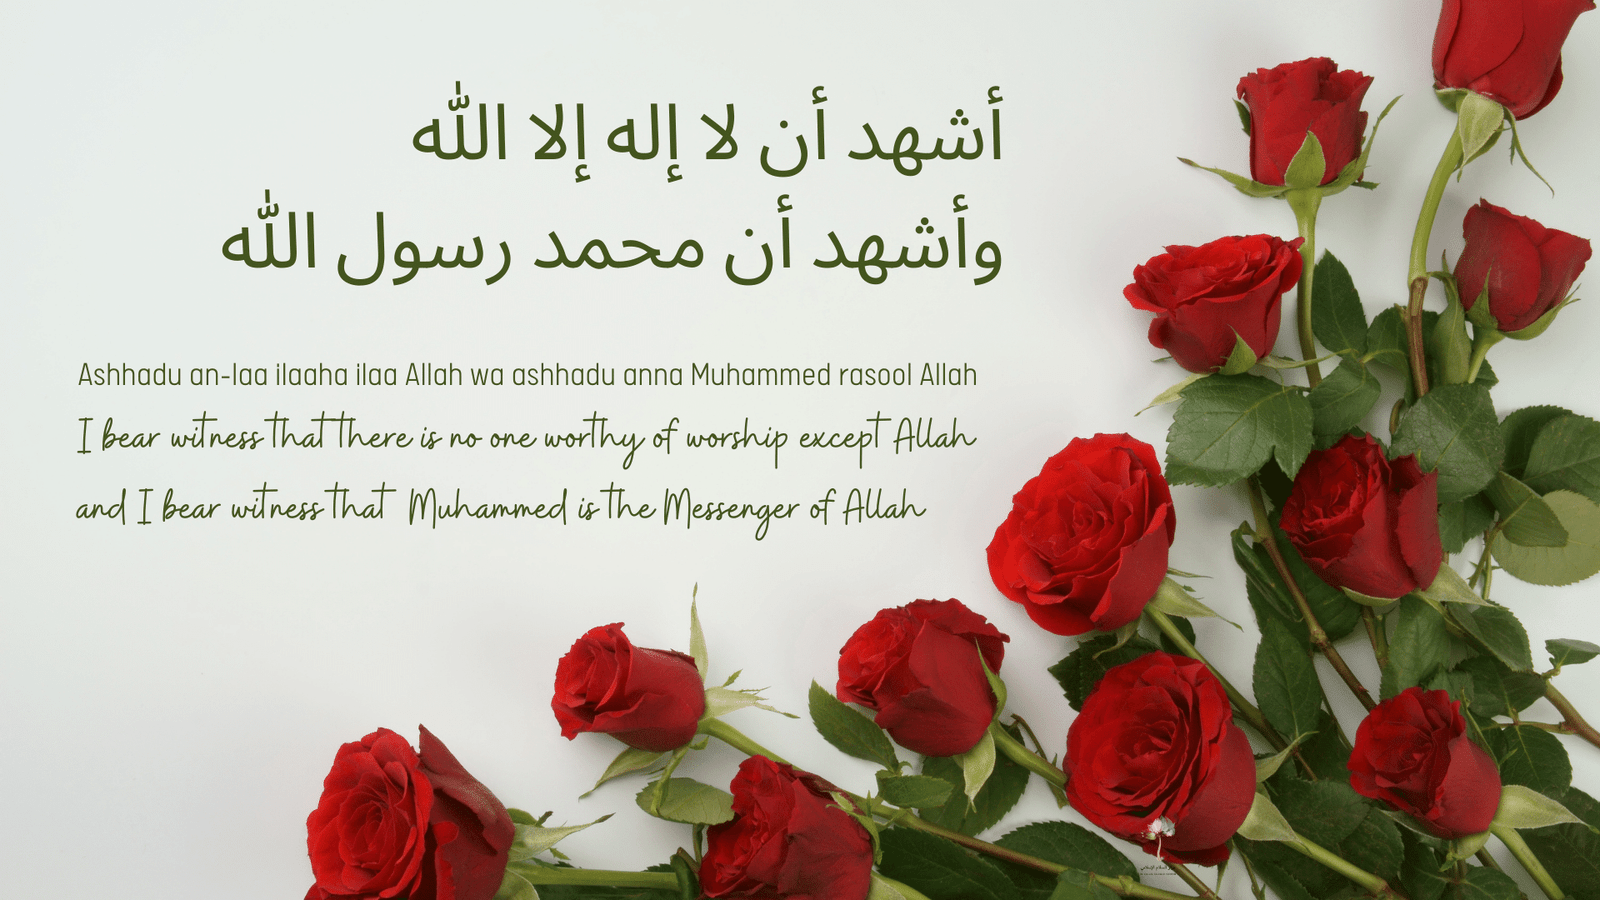 أشهد أن لا إله إلا الله
وأشهد أن محمد رسول الله
Ashhadu an-laa ilaaha ilaa Allah wa ashhadu anna Muhammed rasool Allah
I bear witness that there is no one worthy of worship except Allah
and I bear witness that Muhammed is the Messenger of Allah